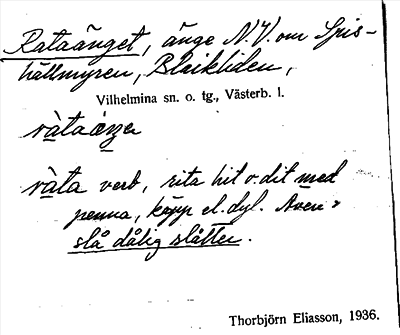 Rataänget, änge N.V. om Spis-
hällmyren, Blaikliden,
Vilhelmina sn. o. tg., Västerb. l.
ràta
ràta verb, rita hit o. dit med
penna, käpp el. dyl. Även:
slå dålig slåtter.
Thorbjörn Eliasson, 1936.